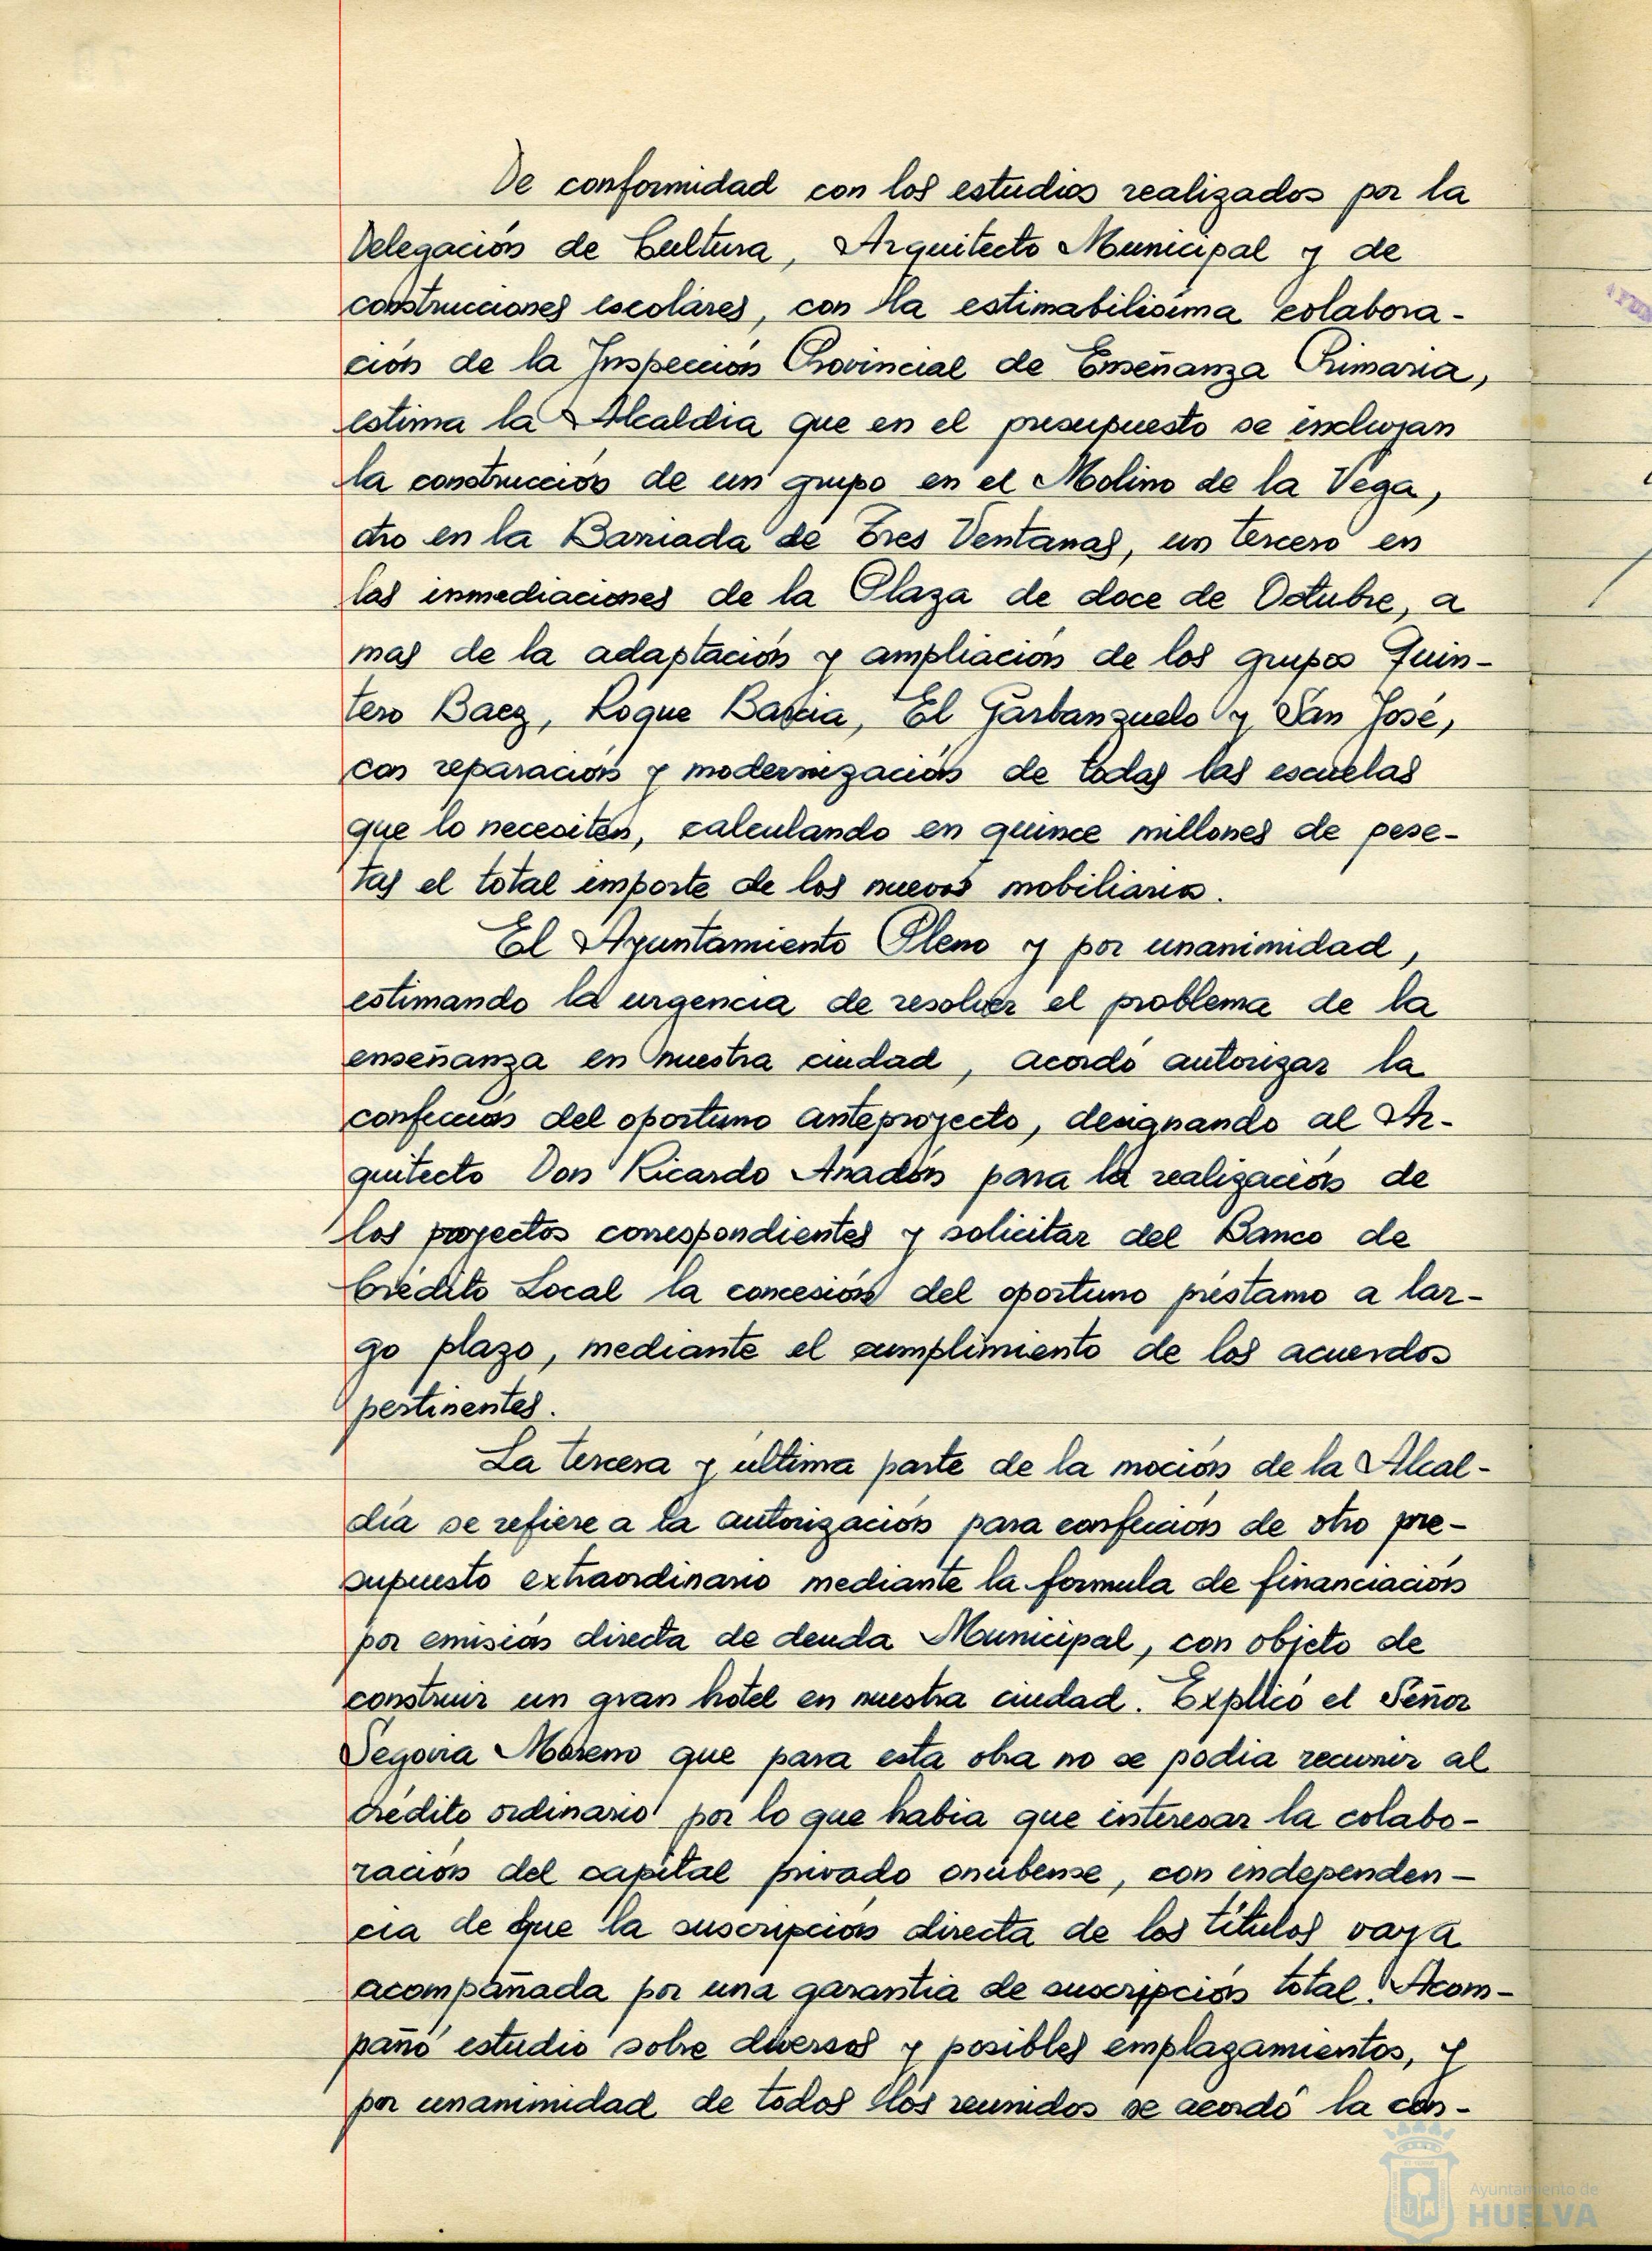 De conformidad con los estudios realizados por la
Delegación de Cultura, Arquitecto Municipal y de
construcciones escolares, con la estimabilisima colabora-
ción de la Inspección Provincial de Enseñanza Primaria,
estima la Alcaldia que en el presupuesto se incluyan
la construcción de un grupo en el Molino de la Vega,
otro en la Barriada de Tres Ventanas, un tercero en
las inmediaciones de la Plaza de doce de Octubre, a
mas de la adaptación y ampliación de los grupos Quin-
tero Baez, Roque Barcia, El Garbanzuelo y San José,
con reparación y modernización de todas las escuelas
que lo necesiten, calculando en quince millones de pese-
tas el total importe de los nuevos mobiliarios.
El Ayuntamiento Pleno y por unanimidad,
estimando la urgencia de resolver el problema de la
enseñanza en nuestra ciudad, acordó autorizar la
confección del oportuno anteproyecto, designando al Ar-
quitecto Don Ricardo Anadón para la realización de
los proyectos correspondientes y solicitar del Banco de
Crédito Local la concesión del oportuno préstamo a lar-
go plazo, mediante el cumplimiento de los acuerdos
pertinentes.
La tercera y última parte de la moción de la Alcal-
día se refiere a la autorización para confección de otro pre-
supuesto extraordinario mediante la formula de financiación
por emisión directa de deuda Municipal, con objeto de
construir un gran hotel en nuestra ciudad. Explicó el Señor
Segovia Moreno que para esta obra no se podia recurrir al
crédito ordinario por lo que habia que interesar la colabo-
ración del capital privado onubense, con independen-
cia de que la suscripción directa de los títulos vaya
acompañada por una garantia de suscripción total. Acom-
pañó estudio sobre diversos y posibles emplazamientos, y
por unanimidad de todos los reunidos se acordó la con-
Ayuntamiento de
HUELVA